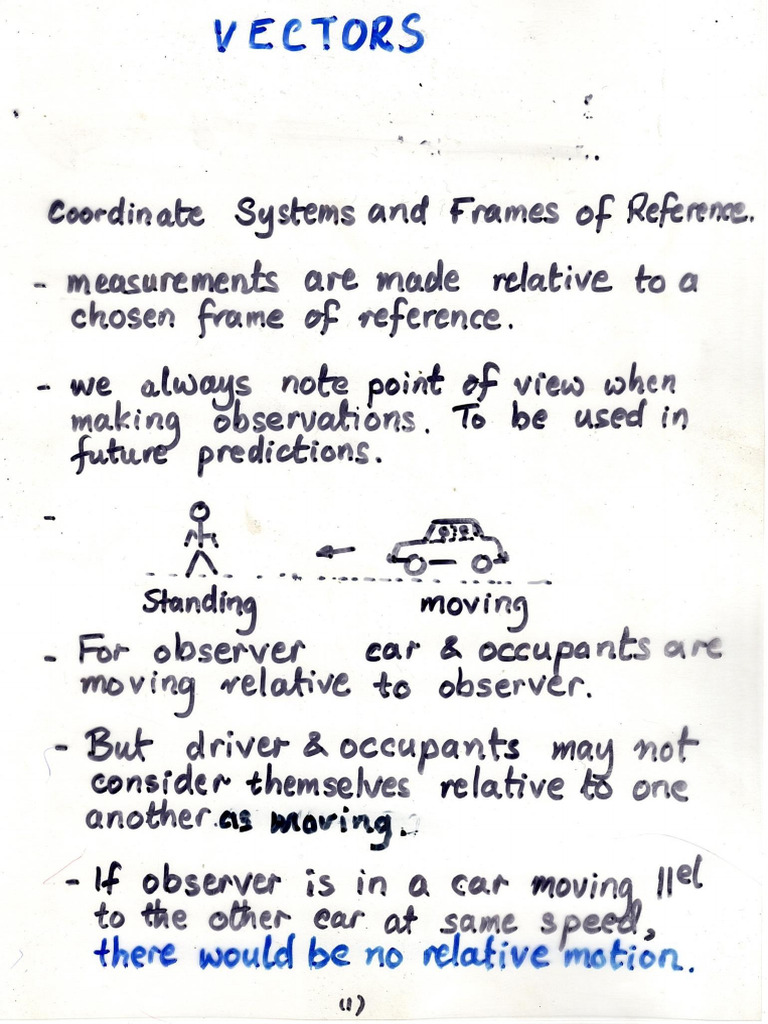 VECTORS
Coordinate Systems and Frames of Reference.
- measurements are made relative to a
chosen frame of reference.
- we always note point of view when
making observations. To be used in
future predictions.
-
Standing moving
- For observer car & occupants are
moving relative to observer.
- But driver & occupants may not
consider themselves relative to one
another as moving.
- If observer is in a car moving ||el
to the other car at same speed,
there would be no relative motion.
(1)